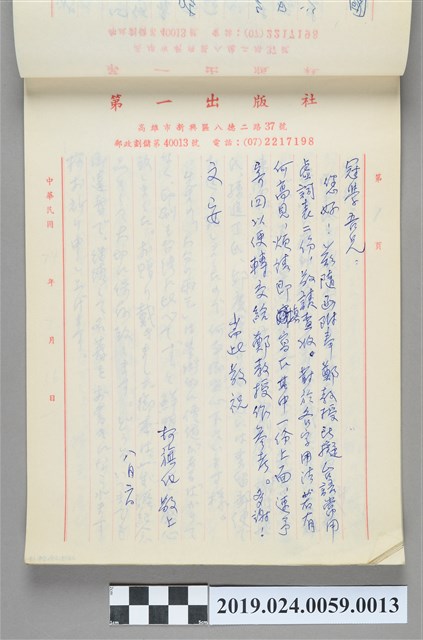 第一出版社
高雄市新興區八德二路37號
郵政劃撥第40013號 電話:(07)2217198
第 頁
冠學吾兄:
您好!茲隨函附寄鄭教授所擬台語常用
虛詞表二份,敬請查收。對於各字用法若有
何高見,煩請即填寫在其中一份上面,速予
寄回以便轉交給鄭教授作參考。多謝!
耑此敬祝
文安
柯旗化敬上
八月六
中華民國 年 月 日
2019.024.0059.0013